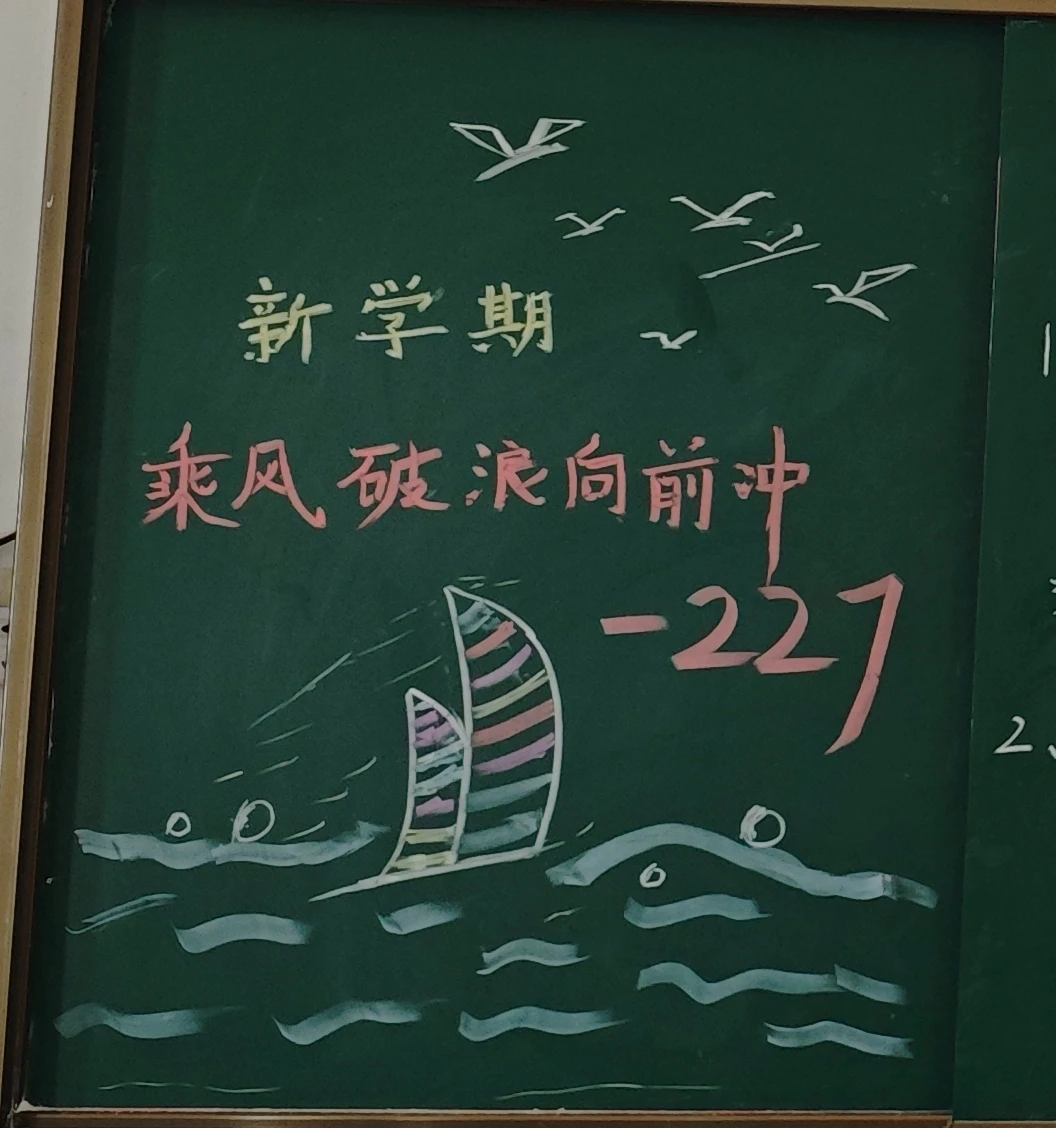 新学期
乘风破浪向前冲
-227
2、